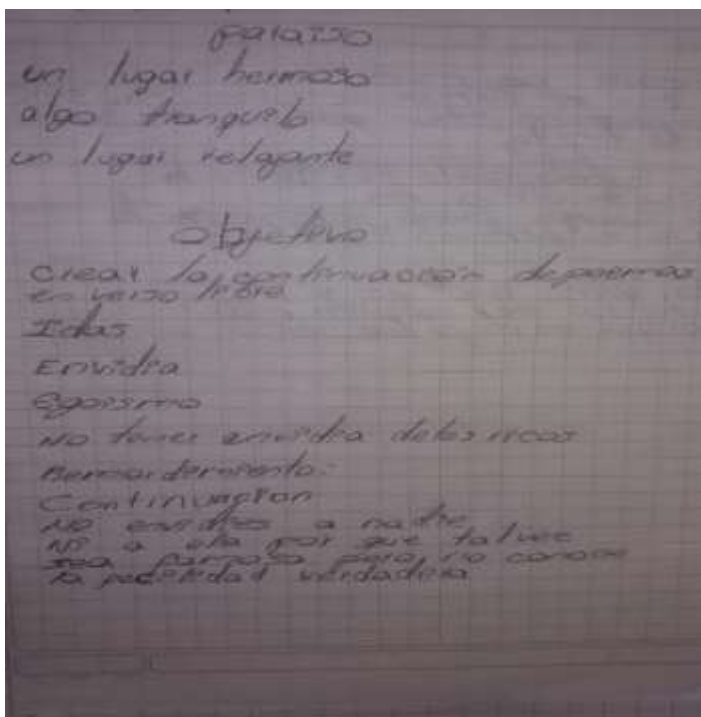 paraiso
un lugar hermoso
algo tranquilo
un lugar relajante
Objetivo
crear la continuación de poemas
en verso libre
Idas
Envidia
Egoismo
No tener envidia de los ricos
Continuacion
No envidies a nadie
ni a ella por que tal vez
sea famosa pero no conoce
la verdadera